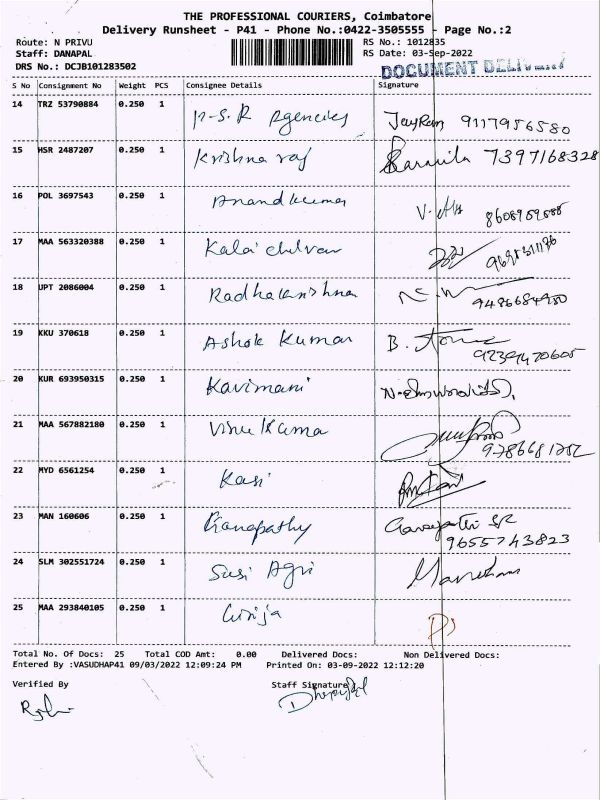 THE PROFESSIONAL COURIERS, Coimbatore
Delivery Runsheet - P41 - Phone No.:0422-3505555 - Page No.:2
Route: N PRIVU RS No.: 1012835
Staff: DANAPAL RS Date: 03-Sep-2022
DRS No.: DCJB101283502 DOCUMENT DELIVERY
S No Consignment No Weight PCS Consignee Details Signature
14 TRZ 53790884 0.250 1 Agencies JayRam 9117956580
15 HSR 2487207 0.250 1 Krishna raj 7397168328
16 POL 3697543 0.250 1 Anand kumar
17 MAA 563320388 0.250 1 Kalai chelvan
18 UPT 2086004 0.250 1 Radhakrishnan
19 KKU 370618 0.250 1 Ashok Kumar B.
20 KUR 693950315 0.250 1 Kavimani
21 MAA 567882180 0.250 1 9786681252
22 MYD 6561254 0.250 1 Kasi
23 MAN 160606 0.250 1 Ganapathy
9655743823
24 SLM 302551724 0.250 1 Susi Agri
25 MAA 293840105 0.250 1 Girija
Total No. Of Docs: 25 Total COD Amt: 0.00 Delivered Docs: Non Delivered Docs:
Entered By :VASUDHAP41 09/03/2022 12:09:24 PM Printed On: 03-09-2022 12:12:20
Verified By Staff Signature